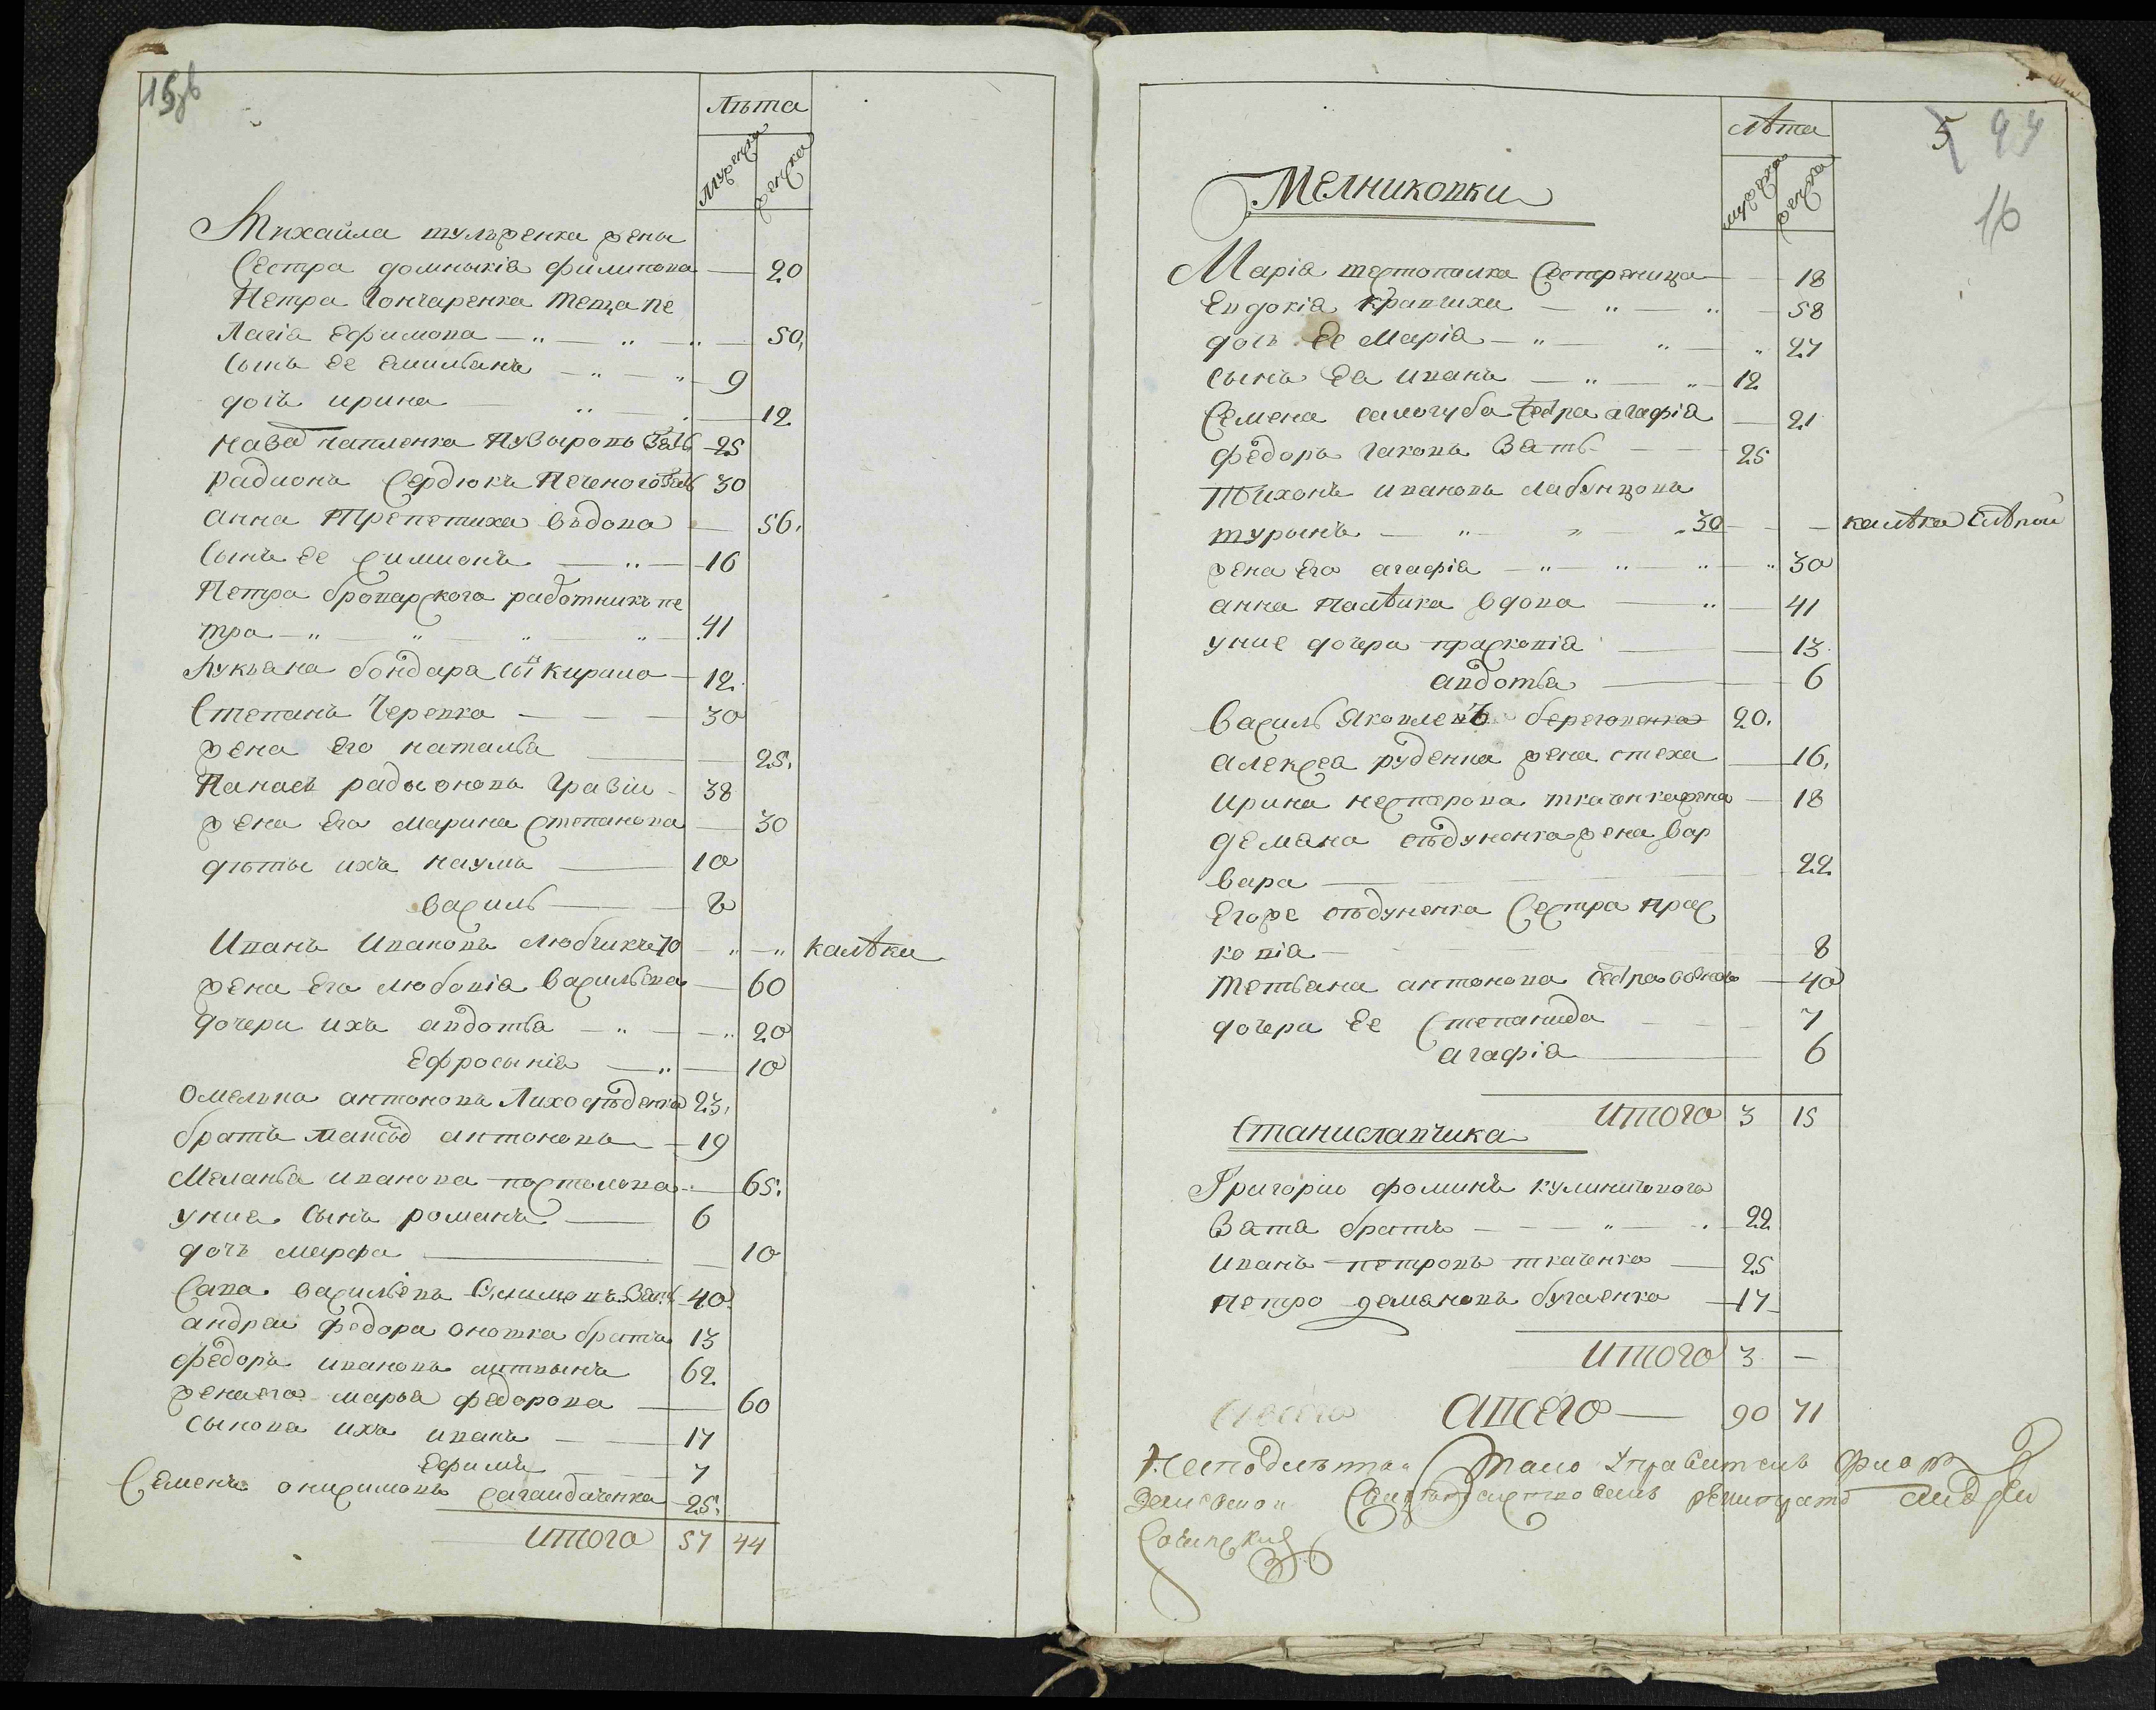 15зв
Лѣта
Мужеска
женска
Михайла тульженка жены
Сестра домникія филипова — 20
Петра Гончаренка теща пе
лагія Ефимова — 50
сынъ ее емильянъ — 9
дочъ ирина — 12
пузыровъ зять 25
радионъ Сердюкъ Печеного зять 30
анна Трепетиха вьдова — 56
сынъ ее симионъ — 16
Петра броварского работникъ пе
тро — 41
Лукьяна бондара сынъ кирило — 12
Степанъ Черевко — 30
жена его наталья — 25
Панасъ радыоновъ Гразій — 38
жена его марина степанова — 30
дѣты ихъ наумъ — 10
василь — 8
Иванъ Ивановъ любчикъ 70 — калѣка
жена его любовія васильева — 60
дочери ихъ авдотья — 20
Ефросинія — 10
омелько антоновъ Лихосѣденко 23
братъ антоновъ — 19
Меланья иванова постолова — 65
у ние сынъ романъ — 6
дочъ марфа — 10
Сава васильевъ зять 40
андрей федора оношка братъ 13
федоръ ивановъ литвинъ 62
жена его марья федорова — 60
сынова ихъ иванъ — 17
Ефимъ — 7
Семенъ онисимовъ сагайдаченко 25
Итого 57 44
5 94
16
лѣта
мужеска
женска
Мелниковки
Марія шестопалка сестреница — 18
Евдокія кравчиха — 58
дочъ ее Марія — 27
сынъ ея иванъ — 12
Семена самогуба сестра агафія — 21
федоръ зять — 25
Тихонъ ивановъ лабунцовъ
шуринъ — 30 — калѣка слѣпой
жена его агафія — 30
анна палѣика вдова — 41
у ние дочера прасковія — 13
авдотья — 6
василь Яковлевъ береговенко 20
алексея руденка жена стеха — 16
ирина нестерова ткаченка жена — 18
демяна сѣдуненка жена вар
вара — 22
Егоре сѣдуненка сестра прас
ковія — 8
Тетьяна антонова — 40
дочера ее Степанида — 7
агафія — 6
Итого 3 15
Станиславчика
Григорій фоминъ кулиничового
зятя братъ — 22
иванъ петровъ ткаченко — 25
петро демяновъ бугаенко — 17
Итого 3 —
А всего — 90 71